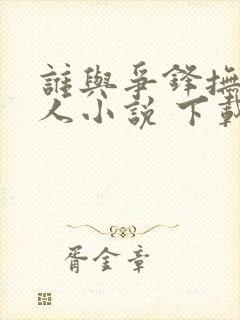 誰與爭鋒撫
人小說 下載
胥金章